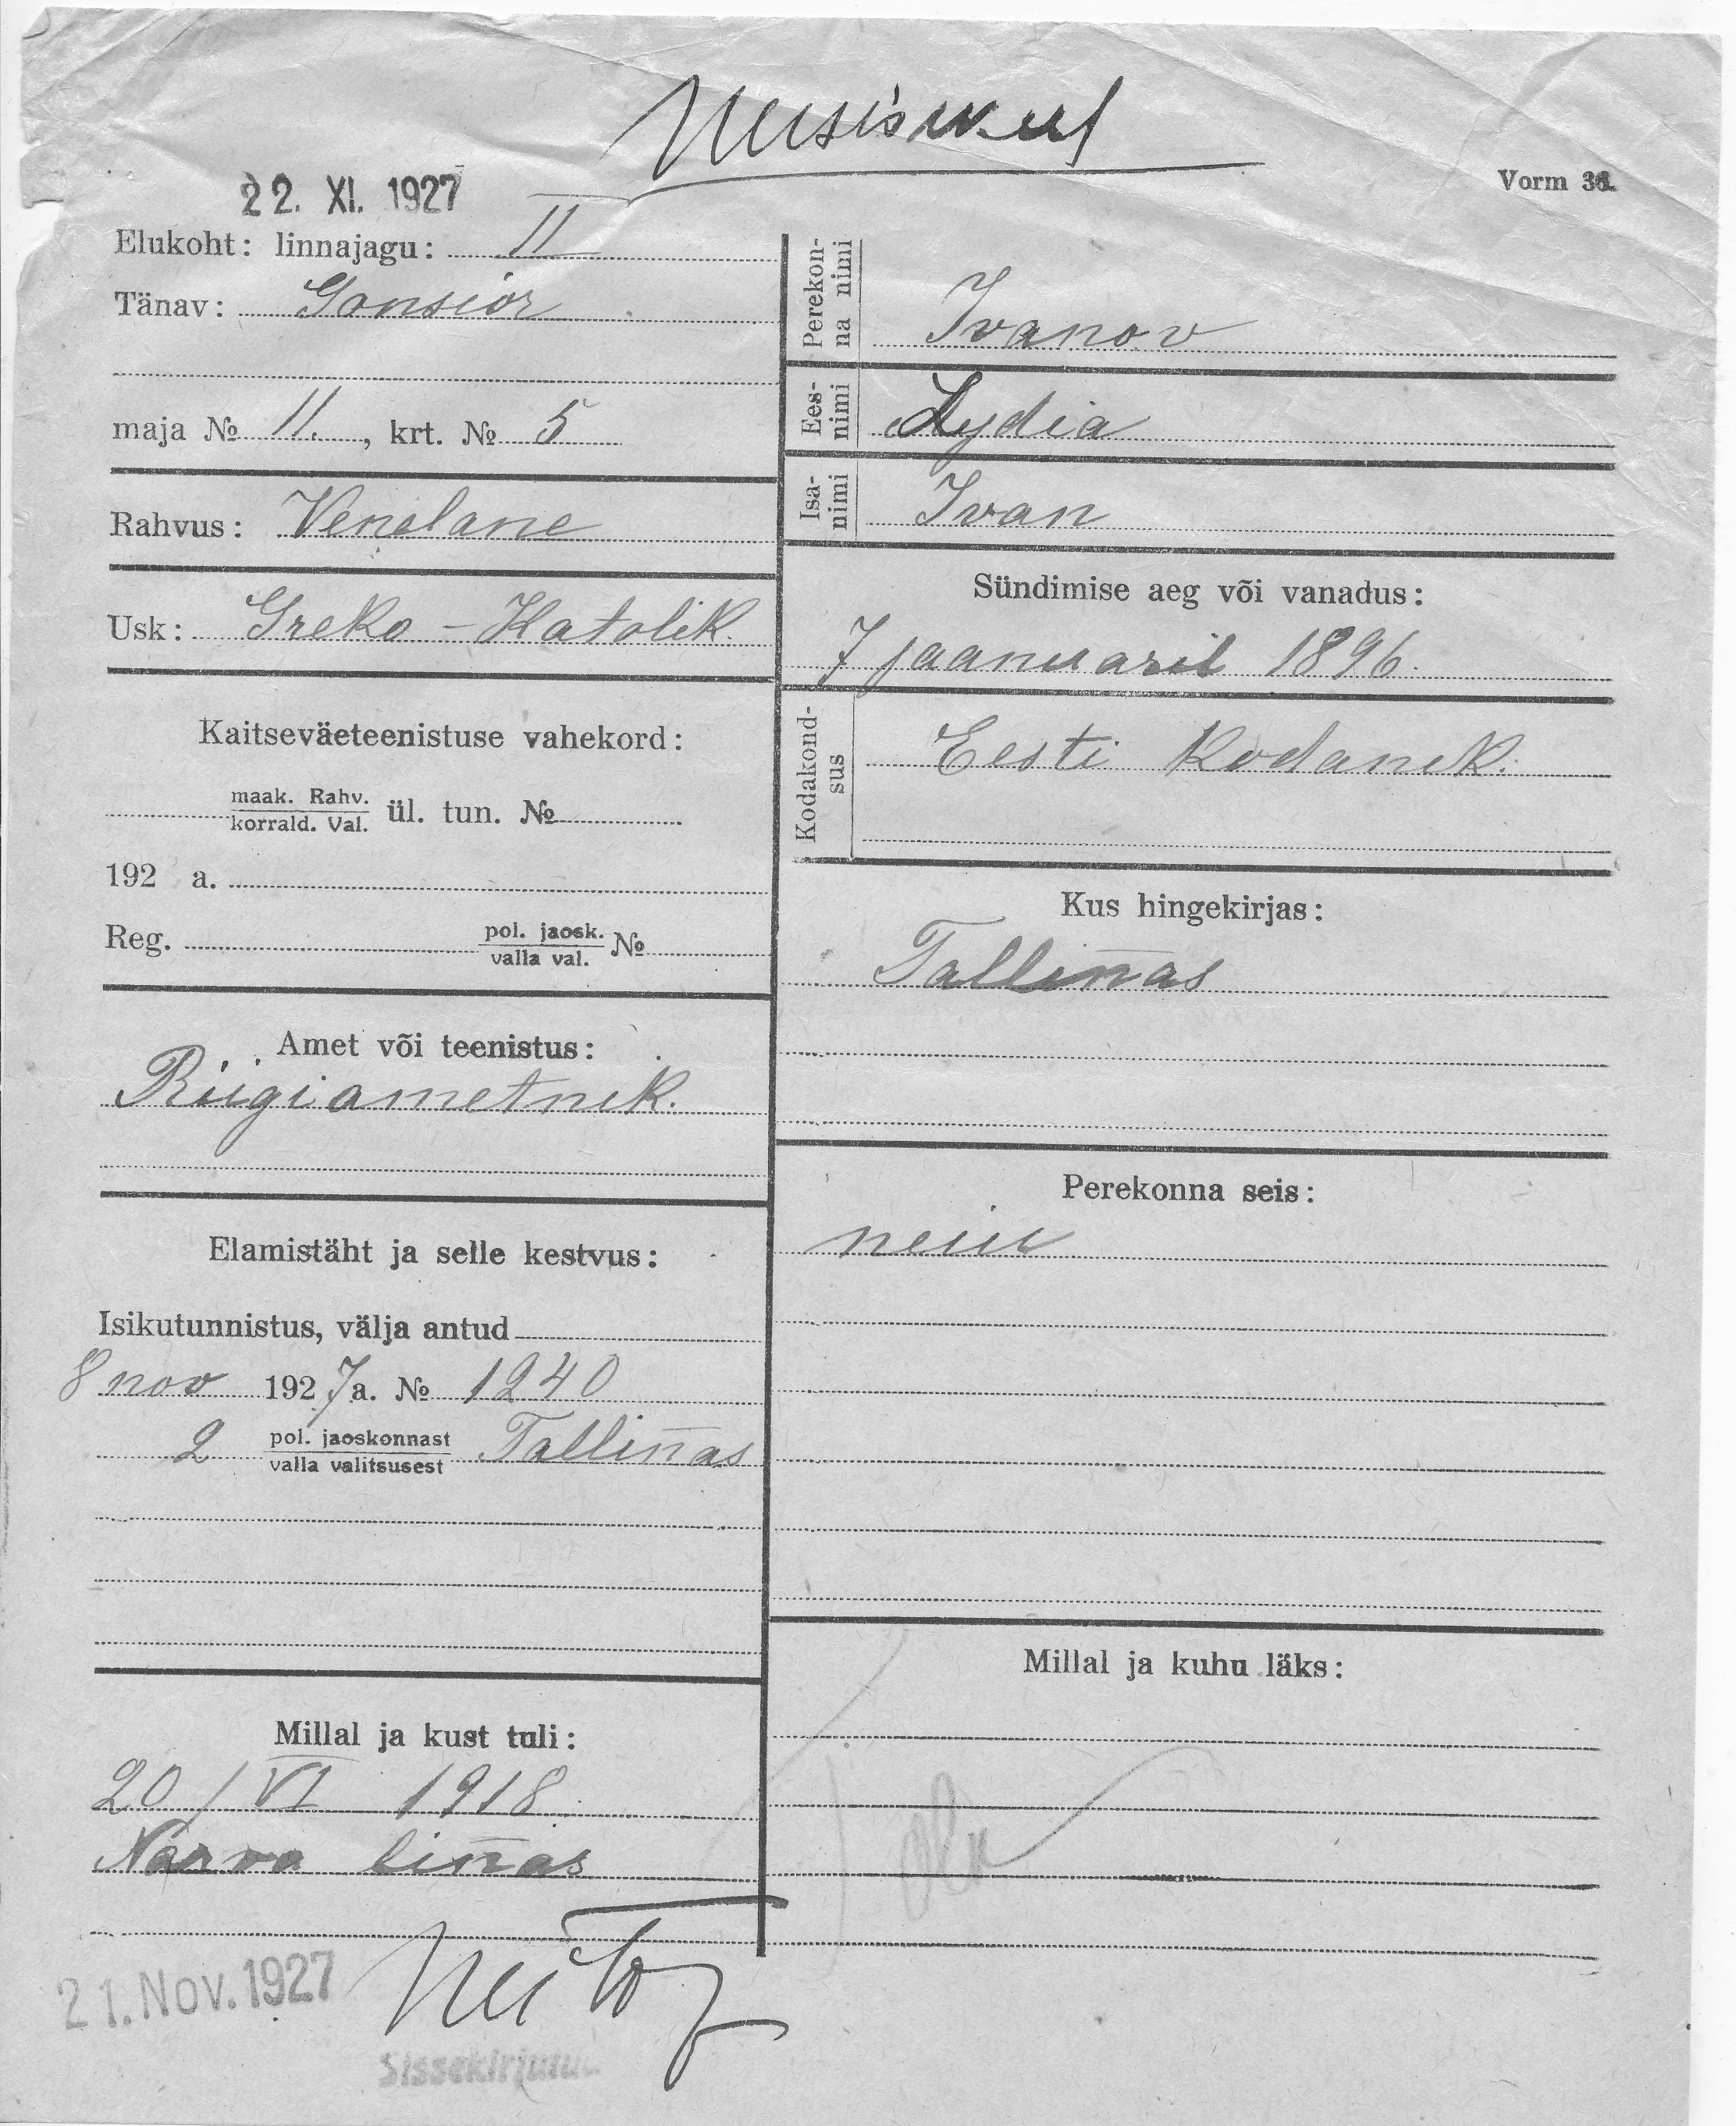 22. XI. 1927
Vorm 36.
Elukoht: linnajagu: II
Tänav: Gonsior
maja № 11., krt. № 5
Rahvus: Venelane
Usk: Greko-Katolik.
Kaitseväeteenistuse vahekord:
maak. Rahv.
korrald. Val. ül. tun. №
192 a.
Reg. pol. jaosk.
valla val. №
Amet või teenistus:
Riigiametnik.
Elamistäht ja selle kestvus:
Isikutunnistus, välja antud
8 nov 1927 a. № 1240
2 pol. jaoskonnast
valla valitsusest Tallin̄as
Millal ja kust tuli:
20/VI 1918
Narva lin̄as
21. Nov. 1927
Perekon-
na nimi
Ivanov
Ees-
nimi
Lydia
Isa-
nimi
Ivan
Sündimise aeg või vanadus:
7 jaanuaril 1896.
Kodakond-
sus
Eesti Kodanik.
Kus hingekirjas:
Tallin̄as
Perekonna seis:
neiu
Millal ja kuhu läks: